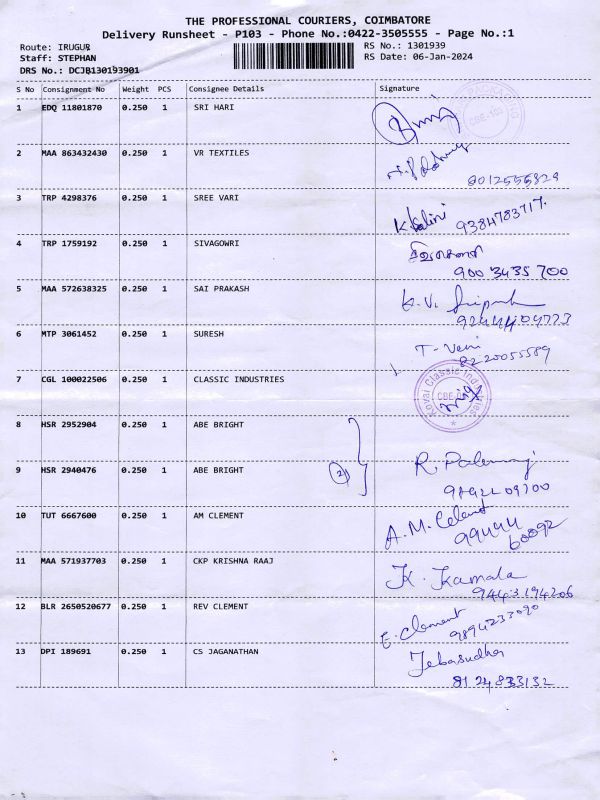 THE PROFESSIONAL COURIERS, COIMBATORE
Delivery Runsheet - P103 - Phone No.:0422-3505555 - Page No.:1
Route: IRUGUR RS No.: 1301939
Staff: STEPHAN RS Date: 06-Jan-2024
DRS No.: DCJB130193901
S No Consignment No Weight PCS Consignee Details Signature
1 EDQ 11801870 0.250 1 SRI HARI
2 MAA 863432430 0.250 1 VR TEXTILES
3 TRP 4298376 0.250 1 SREE VARI
9384783717.
4 TRP 1759192 0.250 1 SIVAGOWRI
900 3435 700
5 MAA 572638325 0.250 1 SAI PRAKASH
K.V.
6 MTP 3061452 0.250 1 SURESH T. Veni
8220055589
7 CGL 100022506 0.250 1 CLASSIC INDUSTRIES Kovai Classic Industries
8 HSR 2952904 0.250 1 ABE BRIGHT
9 HSR 2940476 0.250 1 ABE BRIGHT (2) R.
10 TUT 6667600 0.250 1 AM CLEMENT A.M.
99444
60092
11 MAA 571937703 0.250 1 CKP KRISHNA RAAJ K. Kamala
9443194206
12 BLR 2650520677 0.250 1 REV CLEMENT E. Clement
9894233090
13 DPI 189691 0.250 1 CS JAGANATHAN Jebasudha
8124833132